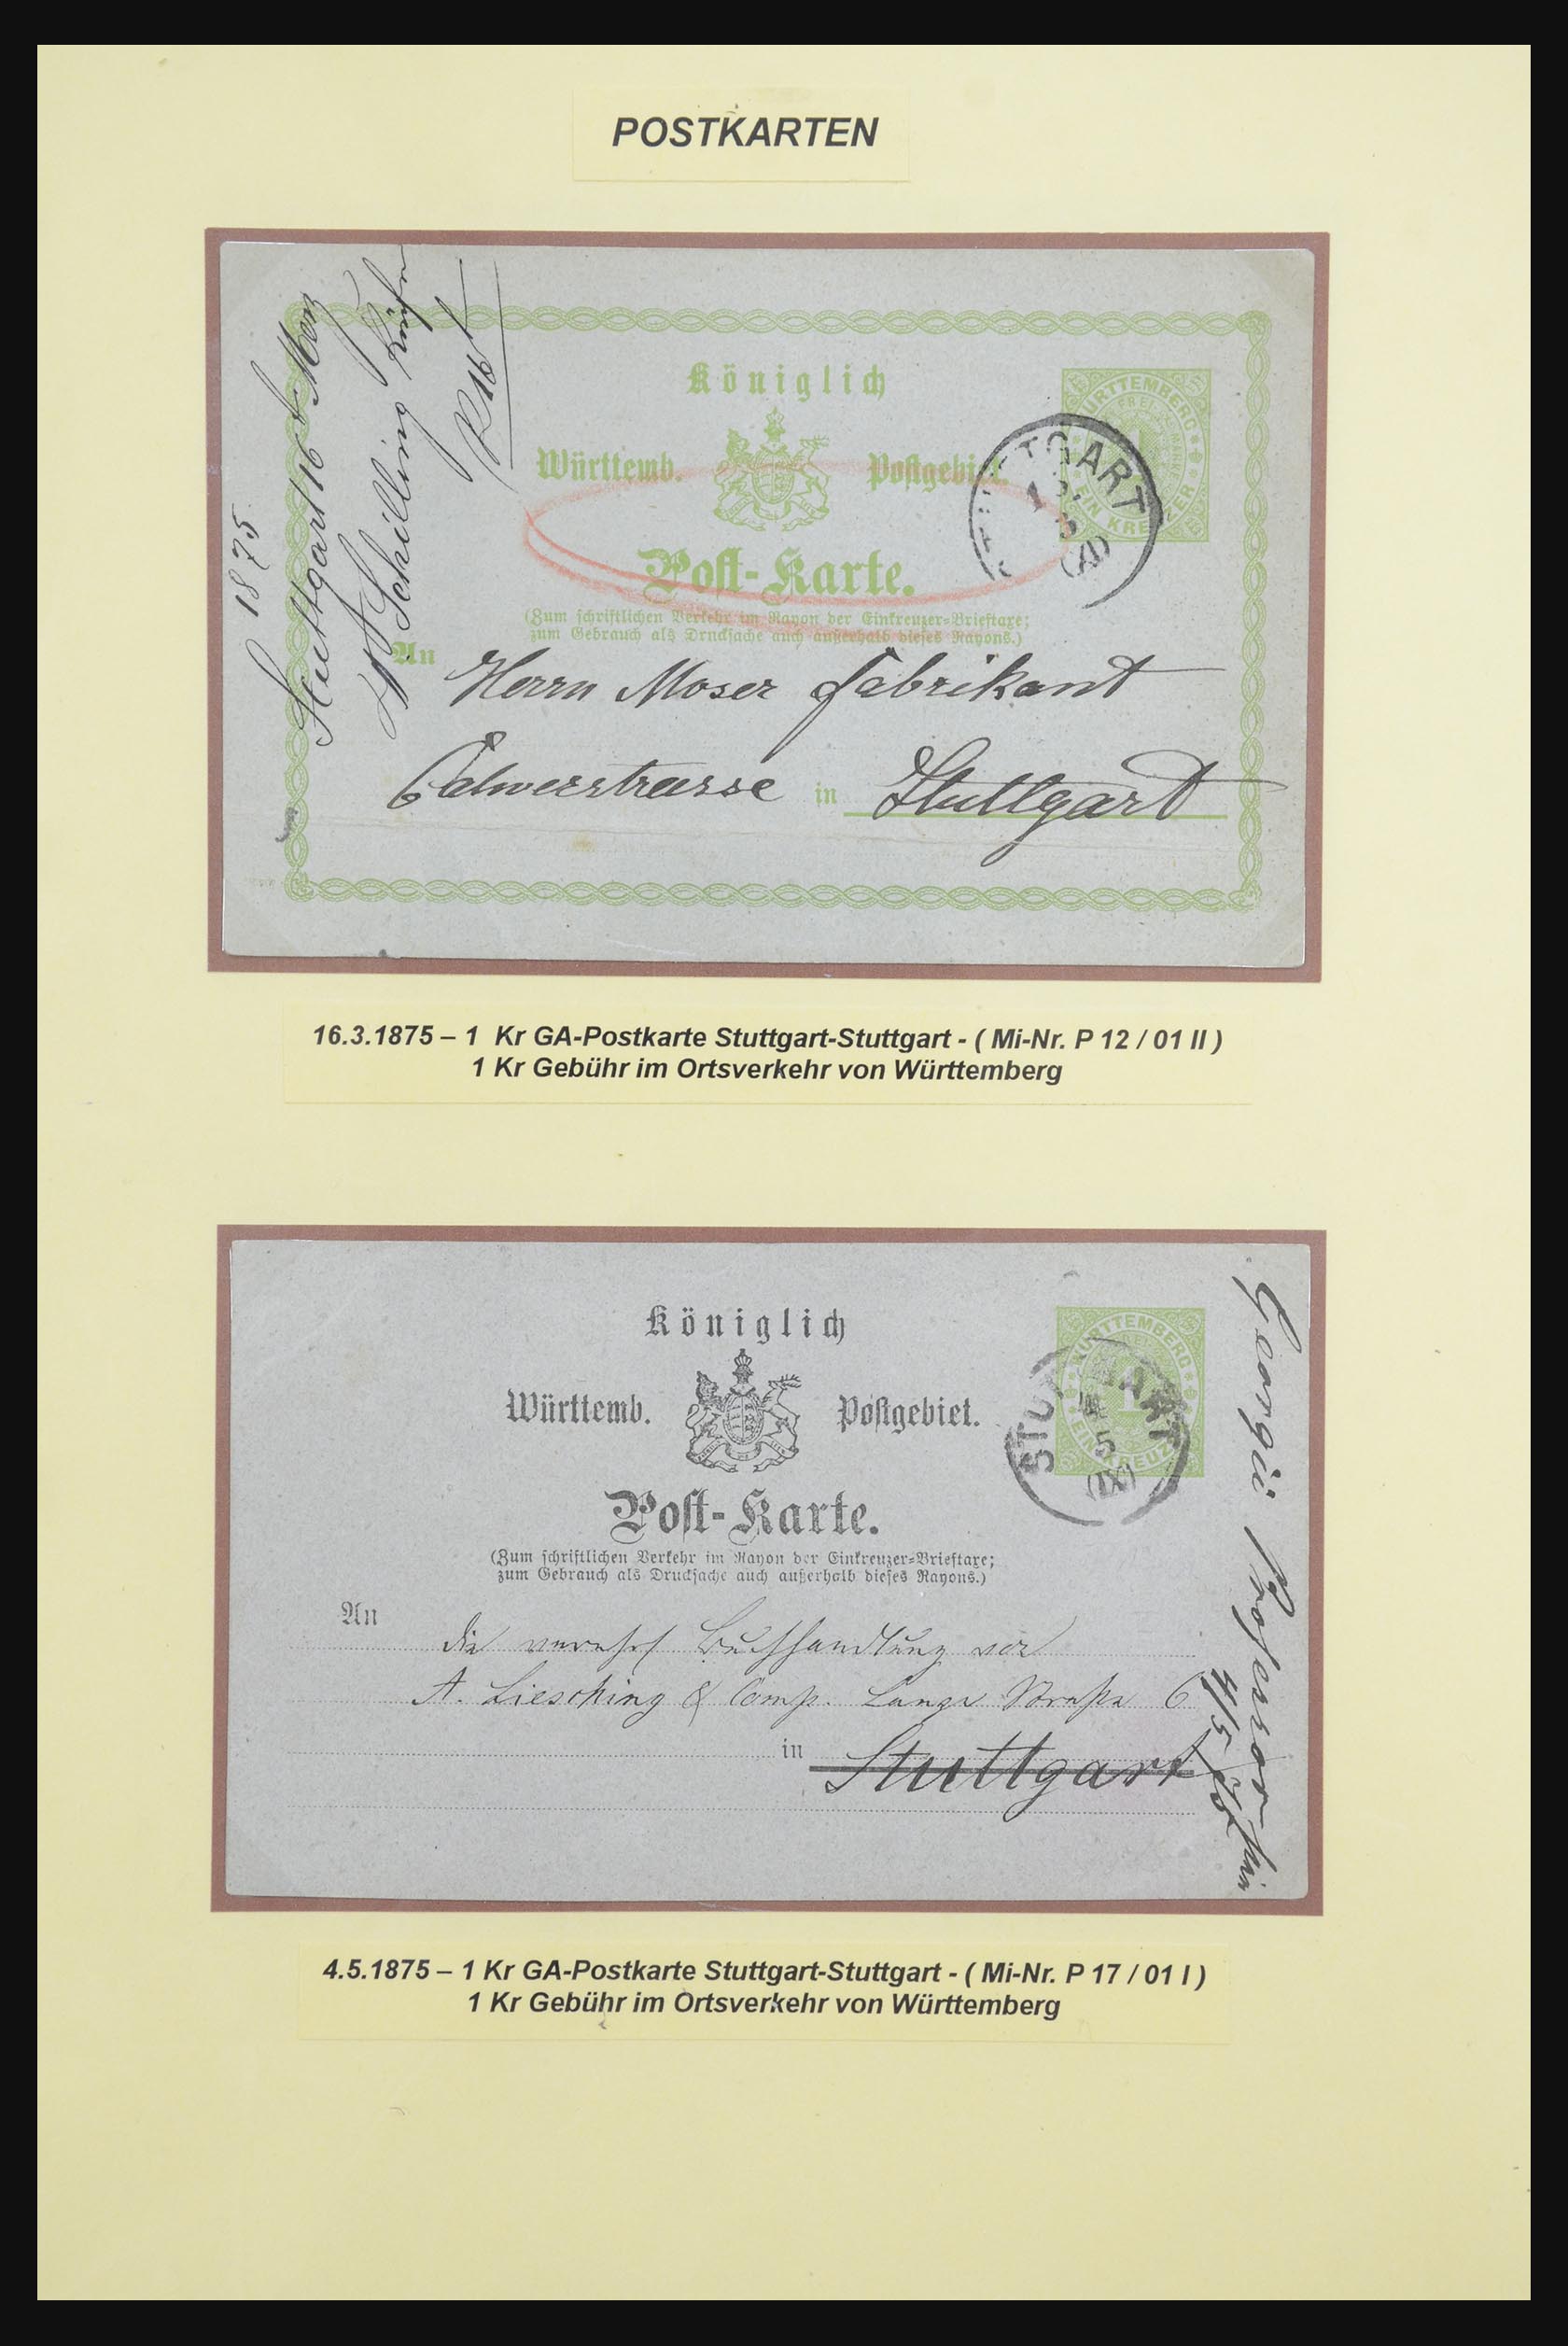 POSTKARTEN
1875
Stuttgart 16 t Merz
Schilling
R 16 t
Königlich
Württemb. Postgebiet.
WÜRTTEMBERG
EIN KREUZER
STUTTGART
Post-Karte.
(Zum schriftlichen Verkehr im Rayon der Einkreuzer-Brieftaxe;
zum Gebrauch als Drucksache auch außerhalb dieses Rayons.)
An Herrn Moser Fabrikant
Calwerstrasse in Stuttgart
16.3.1875 – 1 Kr GA-Postkarte Stuttgart-Stuttgart - ( Mi-Nr. P 12 / 01 II )
1 Kr Gebühr im Ortsverkehr von Württemberg
Königlich
Württemb. Postgebiet.
WÜRTTEMBERG
1
EIN KREUZER
STUTTGART
4
5
(IX)
Post-Karte.
(Zum schriftlichen Verkehr im Rayon der Einkreuzer-Brieftaxe;
zum Gebrauch als Drucksache auch außerhalb dieses Rayons.)
An
die verehrl Buchhandlung von
A. Liesching & Comp. Lange Straße 6
in Stuttgart
Georgii Professor
4/5 75
4.5.1875 – 1 Kr GA-Postkarte Stuttgart-Stuttgart - ( Mi-Nr. P 17 / 01 I )
1 Kr Gebühr im Ortsverkehr von Württemberg